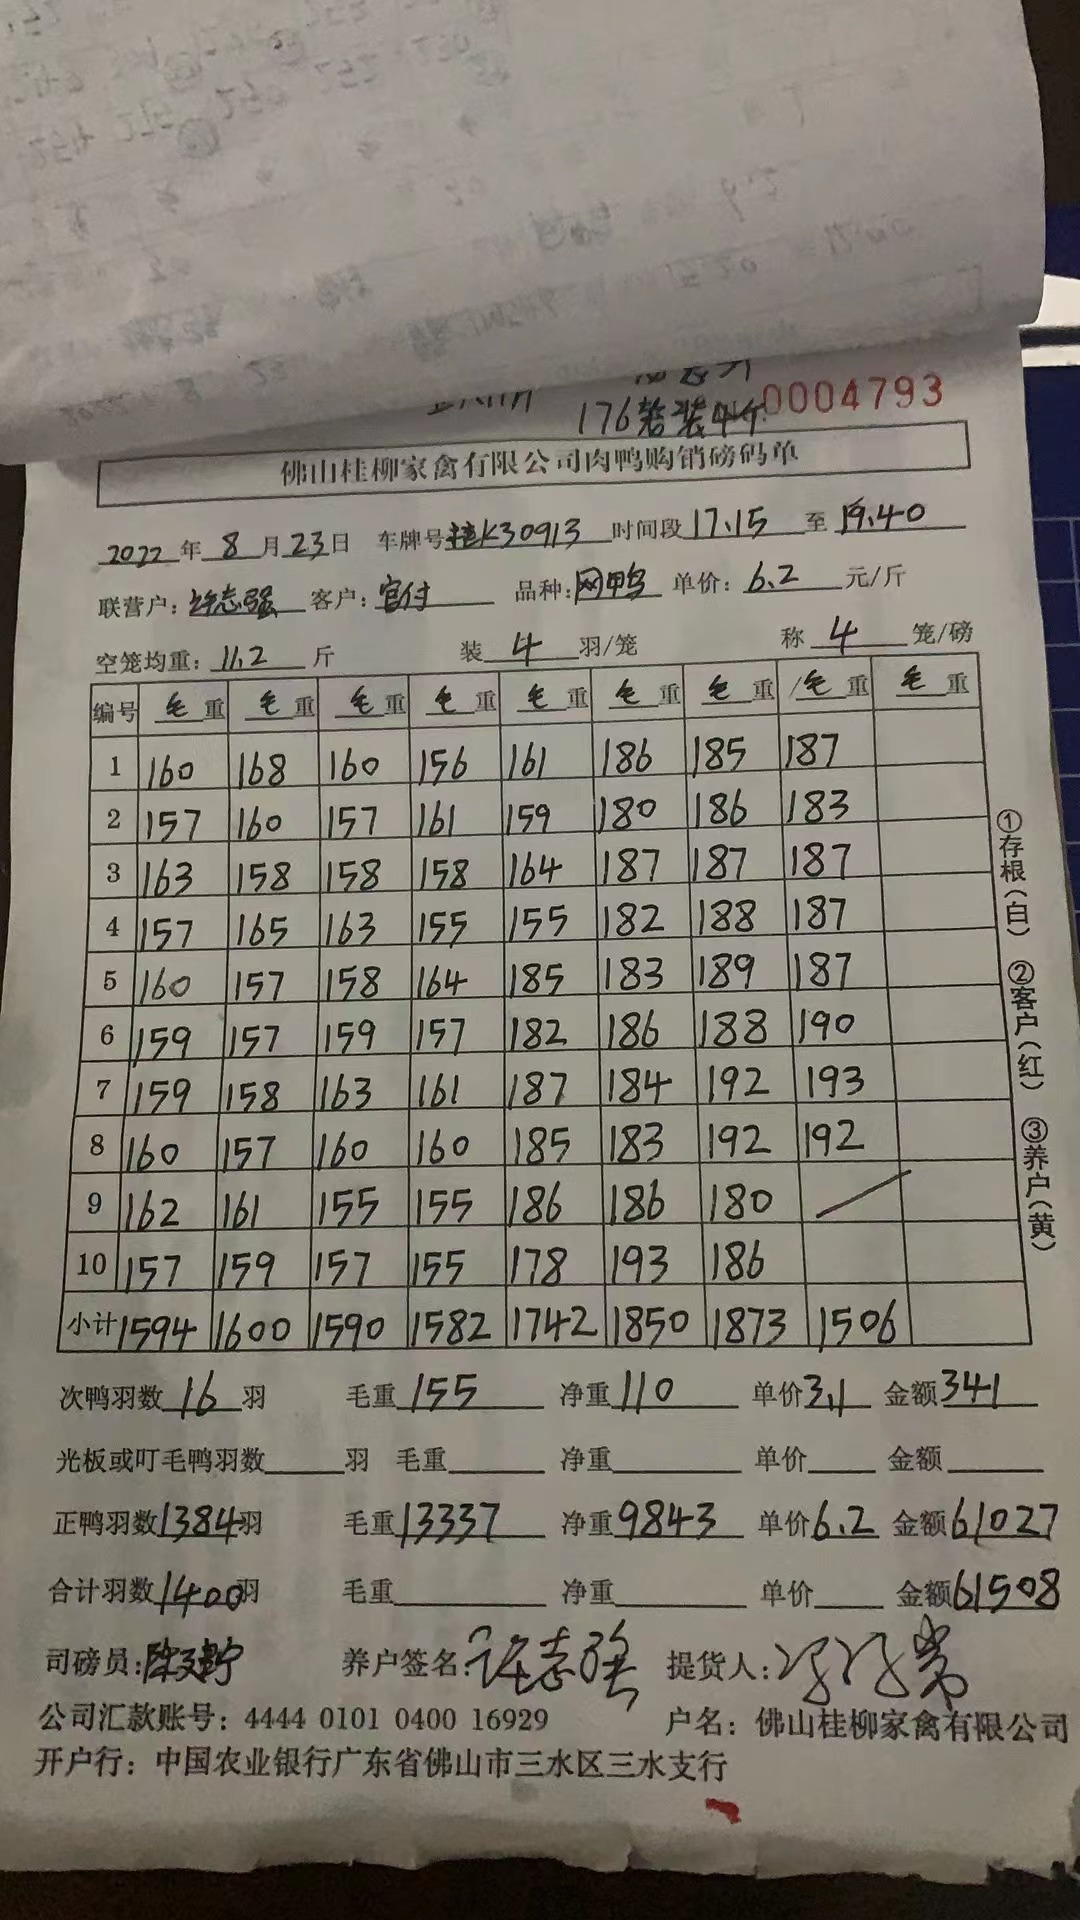 176笼装4个 0004793
佛山桂柳家禽有限公司肉鸭购销磅码单
2022年8月23日 车牌号桂K30913 时间段17.15至19.40
联营户:许志强 客户:官付 品种:网鸭 单价:6.2元/斤
空笼均重:11.2斤 装4羽/笼 称4笼/磅
编号 毛重 毛重 毛重 毛重 毛重 毛重 毛重 毛重 毛重
1 160 168 160 156 161 186 185 187
2 157 160 157 161 159 180 186 183
3 163 158 158 158 164 187 187 187
4 157 165 163 155 155 182 188 187
5 160 157 158 164 185 183 189 187
6 159 157 159 157 182 186 188 190
7 159 158 163 161 187 184 192 193
8 160 157 160 160 185 183 192 192
9 162 161 155 155 186 186 180
10 157 159 157 155 178 193 186
小计 1594 1600 1590 1582 1742 1850 1873 1506
①存根(白) ②客户(红) ③养户(黄)
次鸭羽数16羽 毛重155 净重110 单价3.1 金额341
光板或叮毛鸭羽数 羽 毛重 净重 单价 金额
正鸭羽数1384羽 毛重13337 净重9843 单价6.2 金额61027
合计羽数1400羽 毛重 净重 单价 金额61508
司磅员: 养户签名:许志强 提货人:
公司汇款账号:4444 0101 0400 16929 户名:佛山桂柳家禽有限公司
开户行:中国农业银行广东省佛山市三水区三水支行